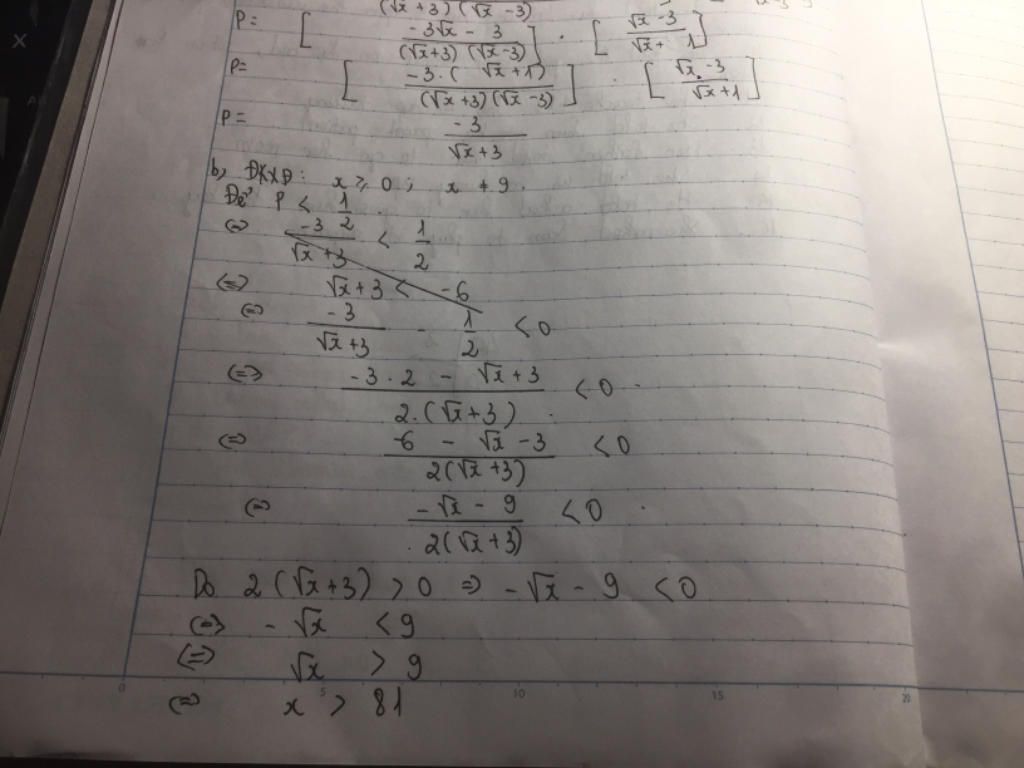 (√x + 3) (√x - 3)
P = [ (-3√x - 3) / ((√x+3) (√x-3)) ] . [ (√x - 3) / (√x + 1) ]
P = [ (-3 . (√x + 1)) / ((√x + 3) (√x - 3)) ] . [ (√x - 3) / (√x + 1) ]
P = -3 / (√x + 3)
b, ĐKXĐ: x ≥ 0 ; x ≠ 9 .
Để P < 1/2
⇔ -3 / (√x + 3) < 1/2
⇔ √x + 3 < -6
⇔ -3 / (√x + 3) - 1/2 < 0
⇔ (-3 . 2 - √x + 3) / (2 . (√x + 3)) < 0
⇔ (-6 - √x - 3) / (2 (√x + 3)) < 0
⇔ (-√x - 9) / (2 (√x + 3)) < 0
Do 2 (√x + 3) > 0 ⇒ -√x - 9 < 0
⇔ - √x < 9
⇔ √x > 9
⇔ x > 81
0 5 10 15 20